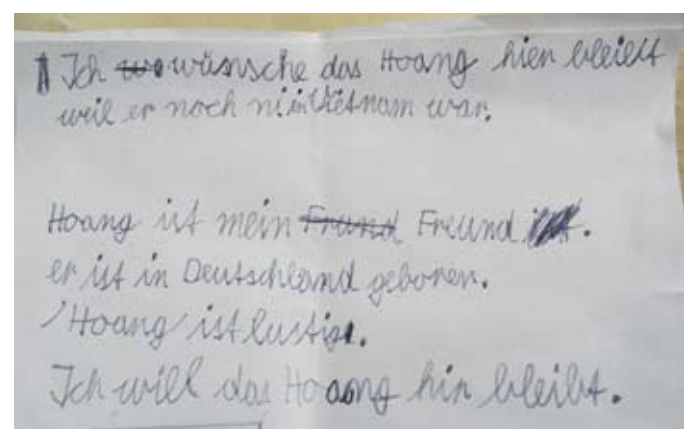 Ich wünsche das Hoang hier bleibt
weil er noch ni in Vietnam war.
Hoang ist mein Frund Freund.
er ist in Deutschland geboren.
Hoang ist lustig.
Ich will das Hoaong hir bleibt.